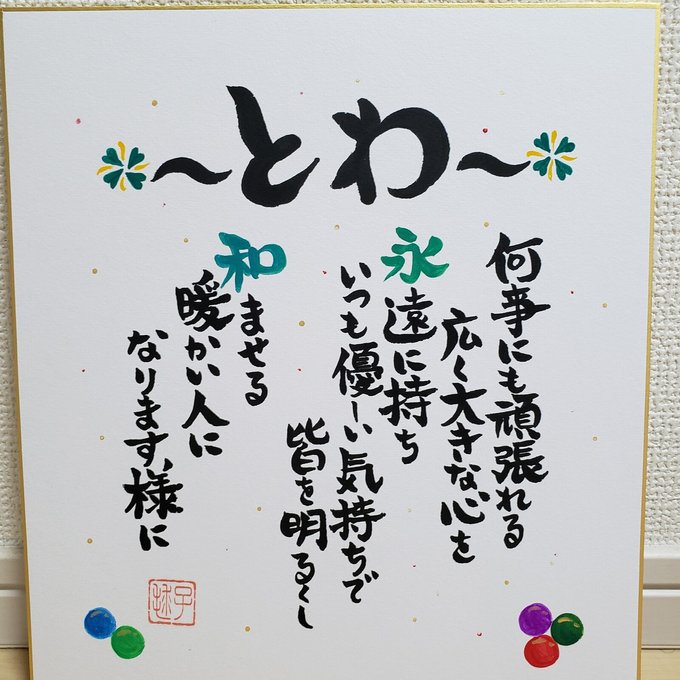 〜とわ〜
何事にも頑張れる
広く大きな心を
永遠に持ち
いつも優しい気持ちで
皆を明るくし
和ませる
暖かい人に
なります様に